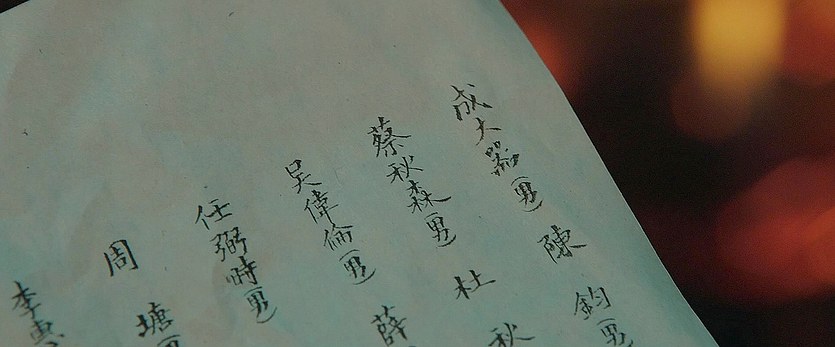 成大器(男)
陳鈞(男
蔡秋森(男)
杜秋
吳偉倫(男)
薛
任弼時(男)
周塘
李